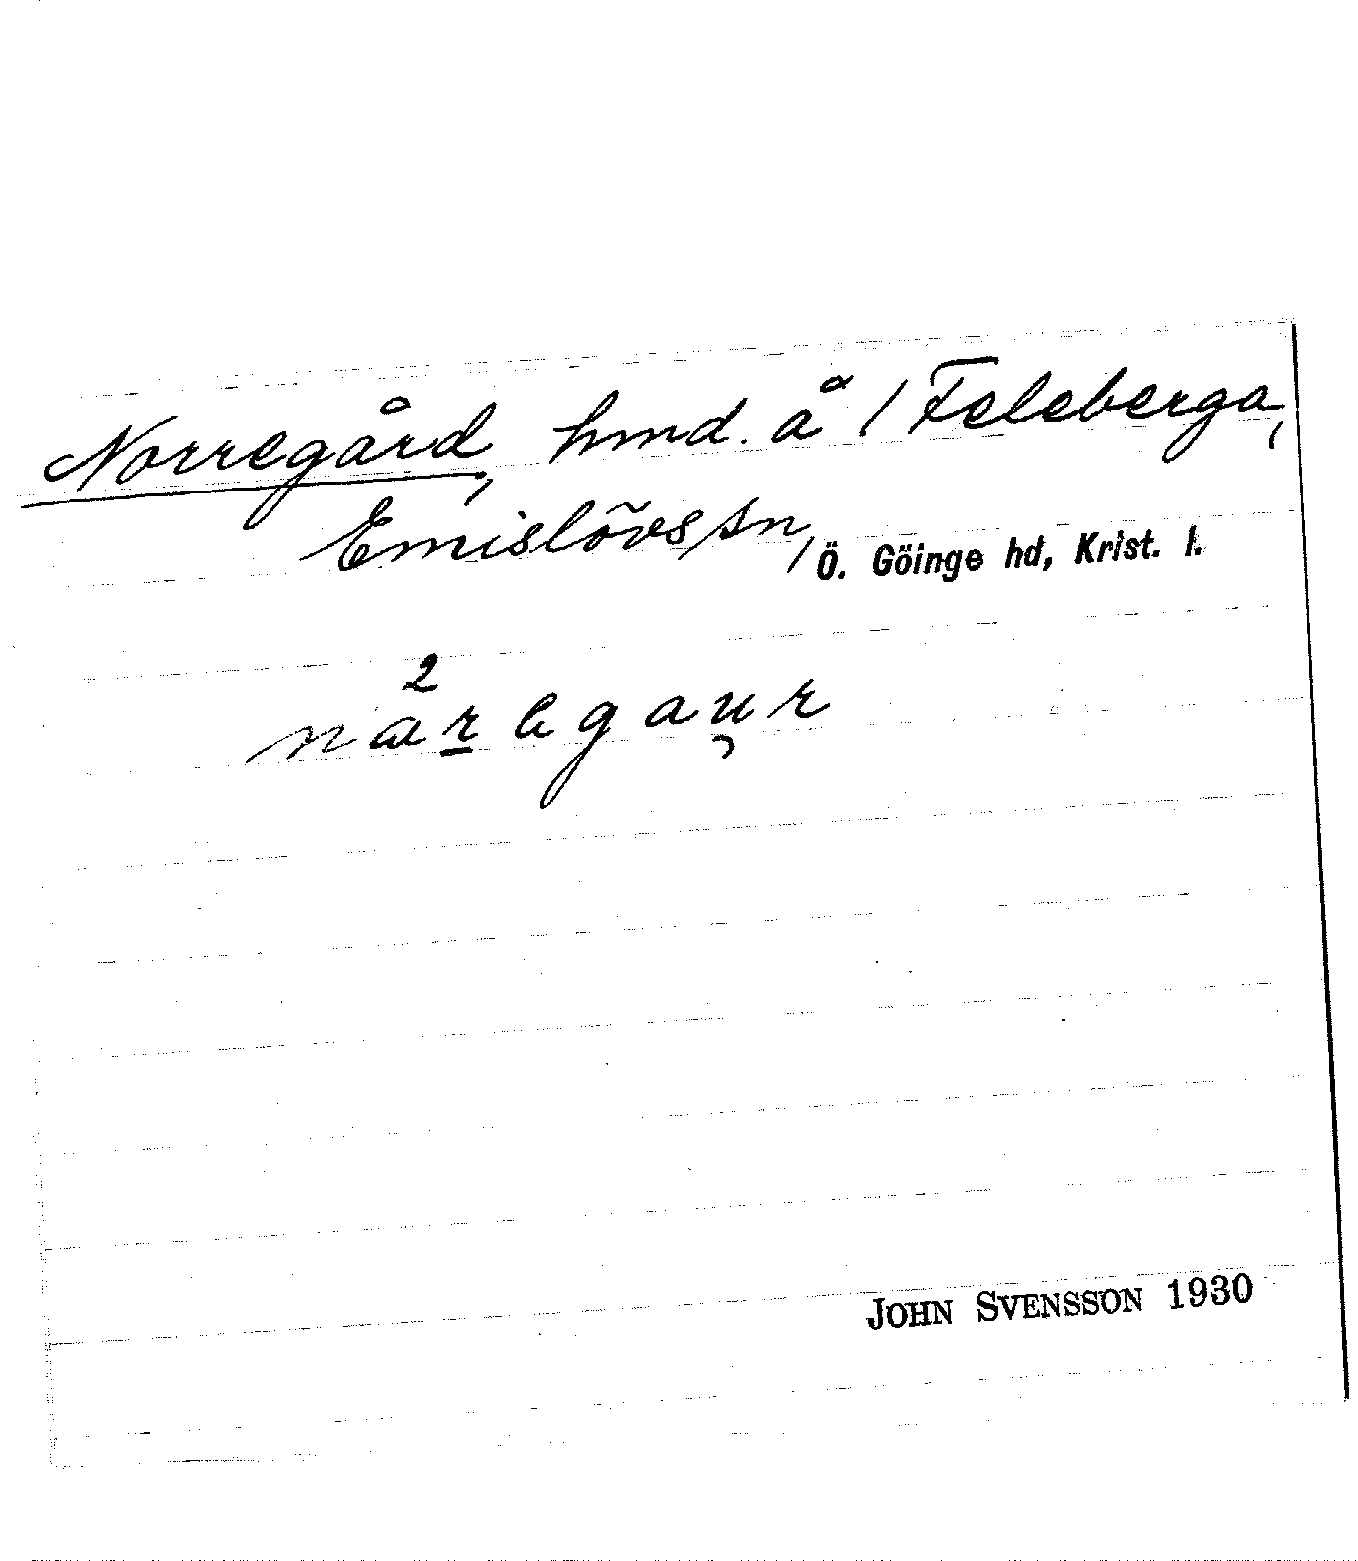 Norregård, hmd. å 1 Feleberga,
Emislövs sn, Ö. Göinge hd, Krist. l.
2
näregaur
JOHN SVENSSON 1930